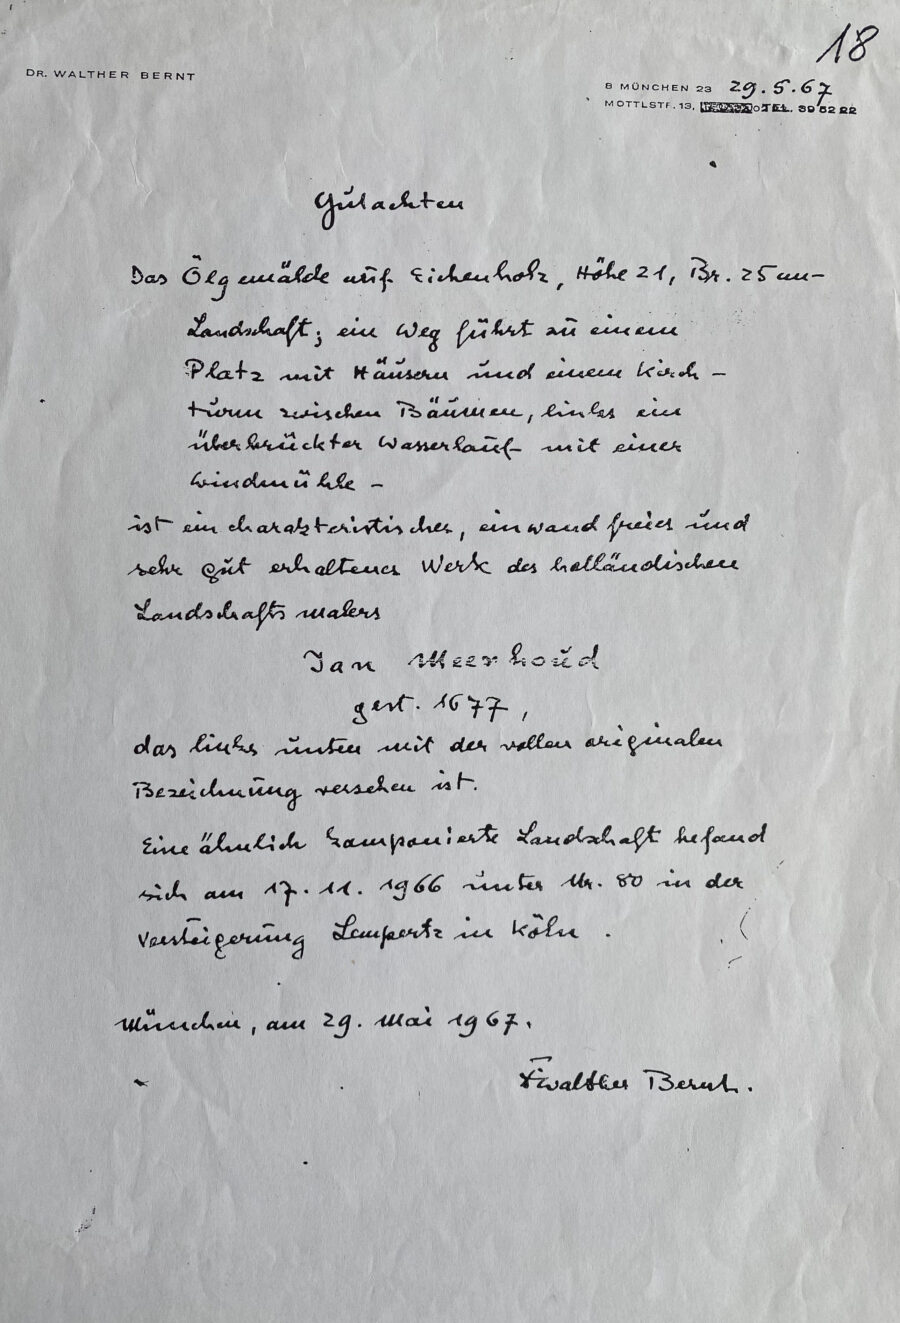 18
DR. WALTHER BERNT
8 MÜNCHEN 23 29.5.67
MOTTLSTR. 13, TEL. 39 52 22
Gutachten
Das Ölgemälde auf Eichenholz, Höhe 21, Br. 25 cm –
Landschaft; ein Weg führt zu einem
Platz mit Häusern und einem Kirch-
turm zwischen Bäumen, links ein
überbrückter Wasserlauf mit einer
Windmühle –
ist ein charakteristisches, einwandfreies und
sehr gut erhaltenes Werk des holländischen
Landschaftsmalers
Jan Meerhoud
gest. 1677,
das links unten mit der vollen originalen
Bezeichnung versehen ist.
Eine ähnlich komponierte Landschaft befand
sich am 17.11.1966 unter Nr. 80 in der
Versteigerung Lempertz in Köln.
München, am 29. Mai 1967.
Walther Bernt.